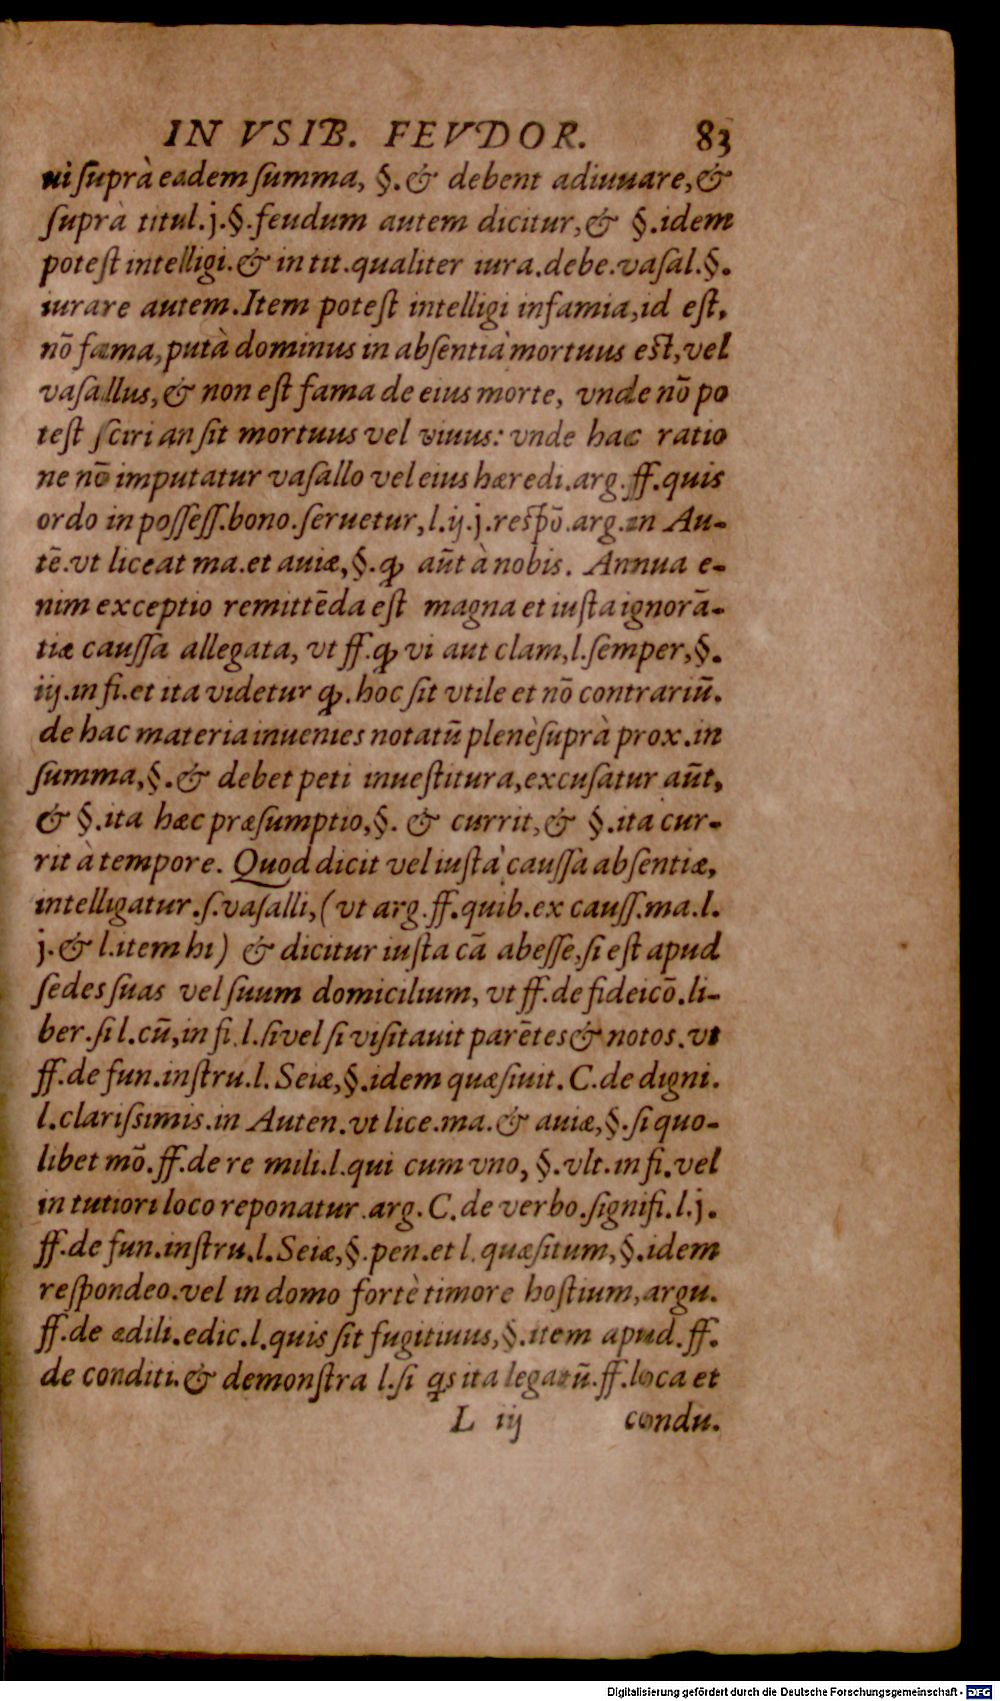 IN VSIB. FEVDOR. 83
ui suprà eadem summa, §. & debent adiuuare, &
suprà titul. j. §. feudum autem dicitur, & §. idem
potest intelligi. & in tit. qualiter iura. debe. vasal. §.
iurare autem. Item potest intelligi infamia, id est,
nō fama, putà dominus in absentia mortuus est, vel
vasallus, & non est fama de eius morte, vnde nō po
test sciri an sit mortuus vel viuus: vnde hac ratio
ne nō imputatur vasallo vel eius hæredi. arg. ff. quis
ordo in possess. bono. seruetur, l. ij. j. respō. arg. in Au-
tē. vt liceat ma. et auiæ, §. ꝙ aūt à nobis. Annua e-
nim exceptio remittēda est magna et iusta ignorā-
tiæ caussa allegata, vt ff. ꝙ vi aut clam, l. semper, §.
iij. in fi. et ita videtur ꝙ. hoc sit vtile et nō contrariū.
de hac materia inuenies notatū plenè suprà prox. in
summa, §. & debet peti inuestitura, excusatur aūt,
& §. ita hæc præsumptio, §. & currit, & §. ita cur-
rit à tempore. Quod dicit vel iusta caussa absentiæ,
intelligatur. s. vasalli, (vt arg. ff. quib. ex causs. ma. l.
j. & l. item hi) & dicitur iusta cā abesse, si est apud
sedes suas vel suum domicilium, vt ff. de fideicō. li-
ber. si l. cū, in fi. l. si vel si visitauit parētes & notos. vt
ff. de fun. instru. l. Seiæ, §. idem quæsiuit. C. de digni.
l. clarissimis. in Auten. vt lice. ma. & auiæ, §. si quo-
libet mō. ff. de re mili. l. qui cum vno, §. vlt. in fi. vel
in tutiori loco reponatur. arg. C. de verbo. signifi. l. j.
ff. de fun. instru. l. Seiæ, §. pen. et l. quæsitum, §. idem
respondeo. vel in domo fortè timore hostium, argu.
ff. de ædili. edic. l. quis sit fugitiuus, §. item apud. ff.
de conditi. & demonstra l. si qs ita legatū. ff. loca et
L iij condu.
Digitalisierung gefördert durch die Deutsche Forschungsgemeinschaft - DFG